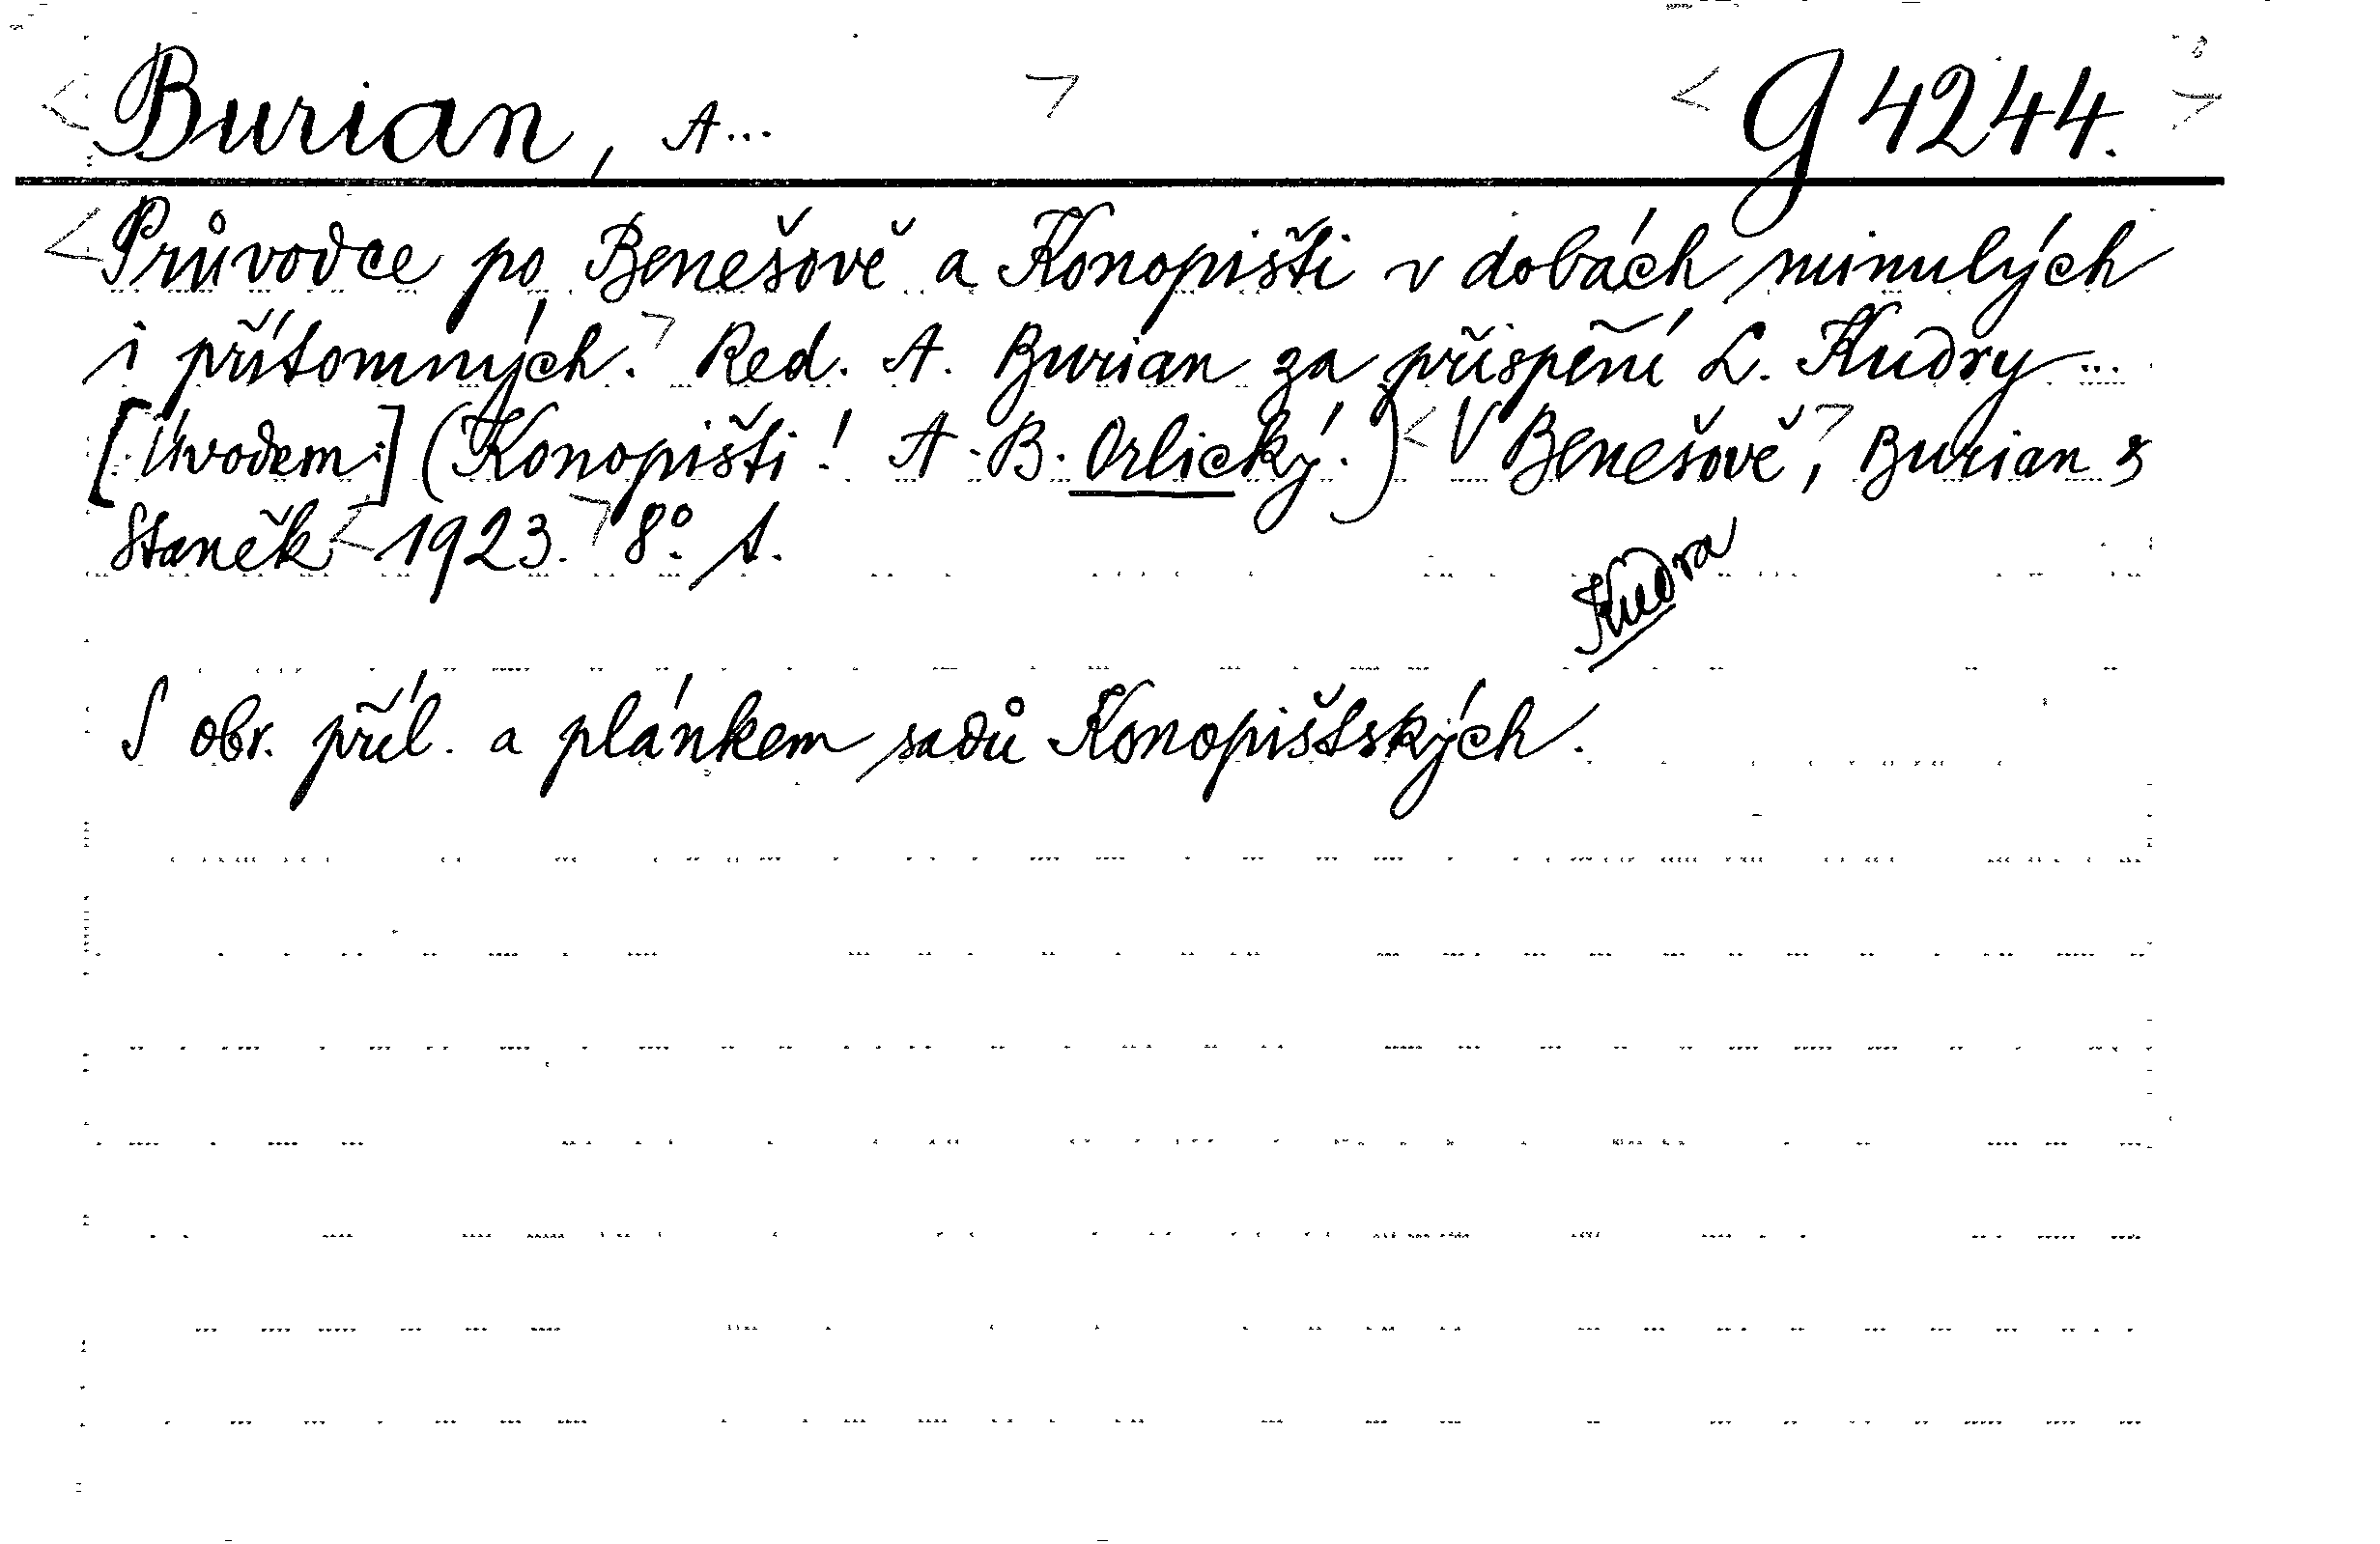 Burian, A... G 4244.
Průvodce po Benešově a Konopišti v dobách minulých
i přítomných. Red. A. Burian za přispění L. Kudry ...
[Úvodem:] (Konopišti! A. B. Orlický.) V Benešově, Burian &
Staněk 1923. 8°. A.
Kudra
S obr. příl. a plánkem sadů Konopištských.